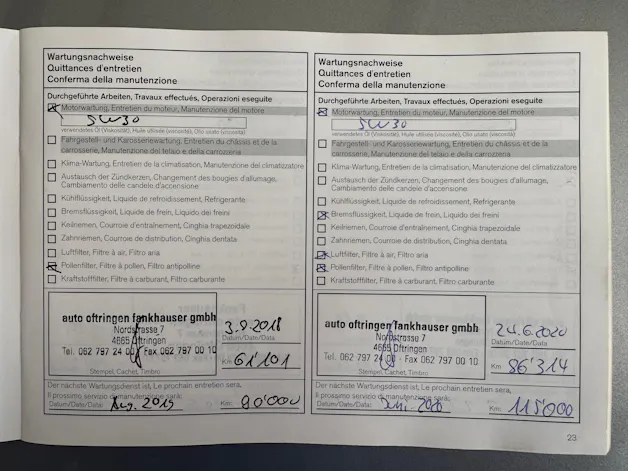 Wartungsnachweise
Quittances d'entretien
Conferma della manutenzione
Durchgeführte Arbeiten, Travaux effectués, Operazioni eseguite
Motorwartung, Entretien du moteur, Manutenzione del motore
5W30
verwendetes Öl (Viskosität), Huile utilisée (viscosité), Olio usato (viscosità)
Fahrgestell- und Karosseriewartung, Entretien du châssis et de la
carrosserie, Manutenzione del telaio e della carrozzeria
Klima-Wartung, Entretien de la climatisation, Manutenzione del climatizzatore
Austausch der Zündkerzen, Changement des bougies d'allumage,
Cambiamento delle candele d'accensione
Kühlflüssigkeit, Liquide de refroidissement, Refrigerante
Bremsflüssigkeit, Liquide de frein, Liquido dei freini
Keilriemen, Courroie d'entraînement, Cinghia trapezoidale
Zahnriemen, Courroie de distribution, Cinghia dentata
Luftfilter, Filtre à air, Filtro aria
Pollenfilter, Filtre à pollen, Filtro antipolline
Kraftstofffilter, Filtre à carburant, Filtro carburante
auto oftringen fankhauser gmbh
Nordstrasse 7
4665 Oftringen
Tel. 062 797 24 00 Fax 062 797 00 10
Stempel, Cachet, Timbro
3.9.2018
Datum/Date/Data:
Km: 61'101
Der nächste Wartungsdienst ist, Le prochain entretien sera,
Il prossimo servizio di manutenzione sarà:
Datum/Date/Data: Aug. 2019 Km: 90'000
Wartungsnachweise
Quittances d'entretien
Conferma della manutenzione
Durchgeführte Arbeiten, Travaux effectués, Operazioni eseguite
Motorwartung, Entretien du moteur, Manutenzione del motore
5W30
verwendetes Öl (Viskosität), Huile utilisée (viscosité), Olio usato (viscosità)
Fahrgestell- und Karosseriewartung, Entretien du châssis et de la
carrosserie, Manutenzione del telaio e della carrozzeria
Klima-Wartung, Entretien de la climatisation, Manutenzione del climatizzatore
Austausch der Zündkerzen, Changement des bougies d'allumage,
Cambiamento delle candele d'accensione
Kühlflüssigkeit, Liquide de refroidissement, Refrigerante
Bremsflüssigkeit, Liquide de frein, Liquido dei freini
Keilriemen, Courroie d'entraînement, Cinghia trapezoidale
Zahnriemen, Courroie de distribution, Cinghia dentata
Luftfilter, Filtre à air, Filtro aria
Pollenfilter, Filtre à pollen, Filtro antipolline
Kraftstofffilter, Filtre à carburant, Filtro carburante
auto oftringen fankhauser gmbh
Nordstrasse 7
4665 Oftringen
Tel. 062 797 24 00 Fax 062 797 00 10
Stempel, Cachet, Timbro
24.6.2020
Datum/Date/Data:
Km: 86'314
Der nächste Wartungsdienst ist, Le prochain entretien sera,
Il prossimo servizio di manutenzione sarà:
Datum/Date/Data: Km: 115'000
23